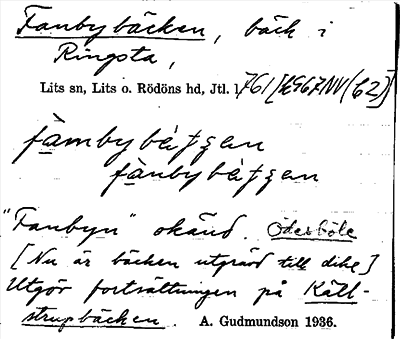 Fanbybäcken, bäck i
Ringsta,
Lits sn, Lits o. Rödöns hd, Jtl. 1761 [
fàmbybèt̯ʒen
fànbybèt̯ʒen
"Fanbyn" okänd. Ödesböle
[Nu är bäcken utgrävd till dike]
Utgör fortsättningen på Käll-
strupbäcken. A. Gudmundson 1936.